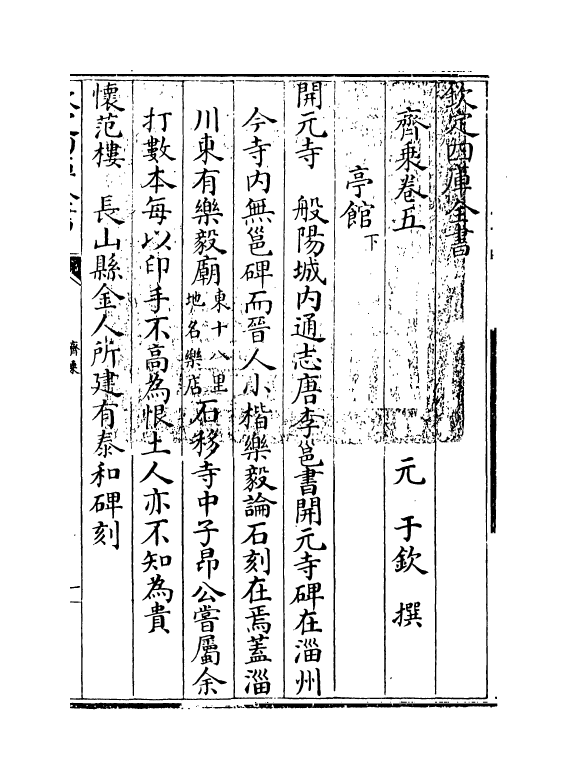 欽定四庫全書
齊乘卷五
元 于欽 撰
亭館下
開元寺 般陽城内通志唐李邕書開元寺碑在淄州
今寺内無邕碑而晉人小楷樂毅論石刻在焉蓋淄
川東有樂毅廟東十八里地名樂店石移寺中子昂公嘗屬余
打數本每以印手不高為恨土人亦不知為貴
懷范樓 長山縣金人所建有泰和碑刻
齊乘
一